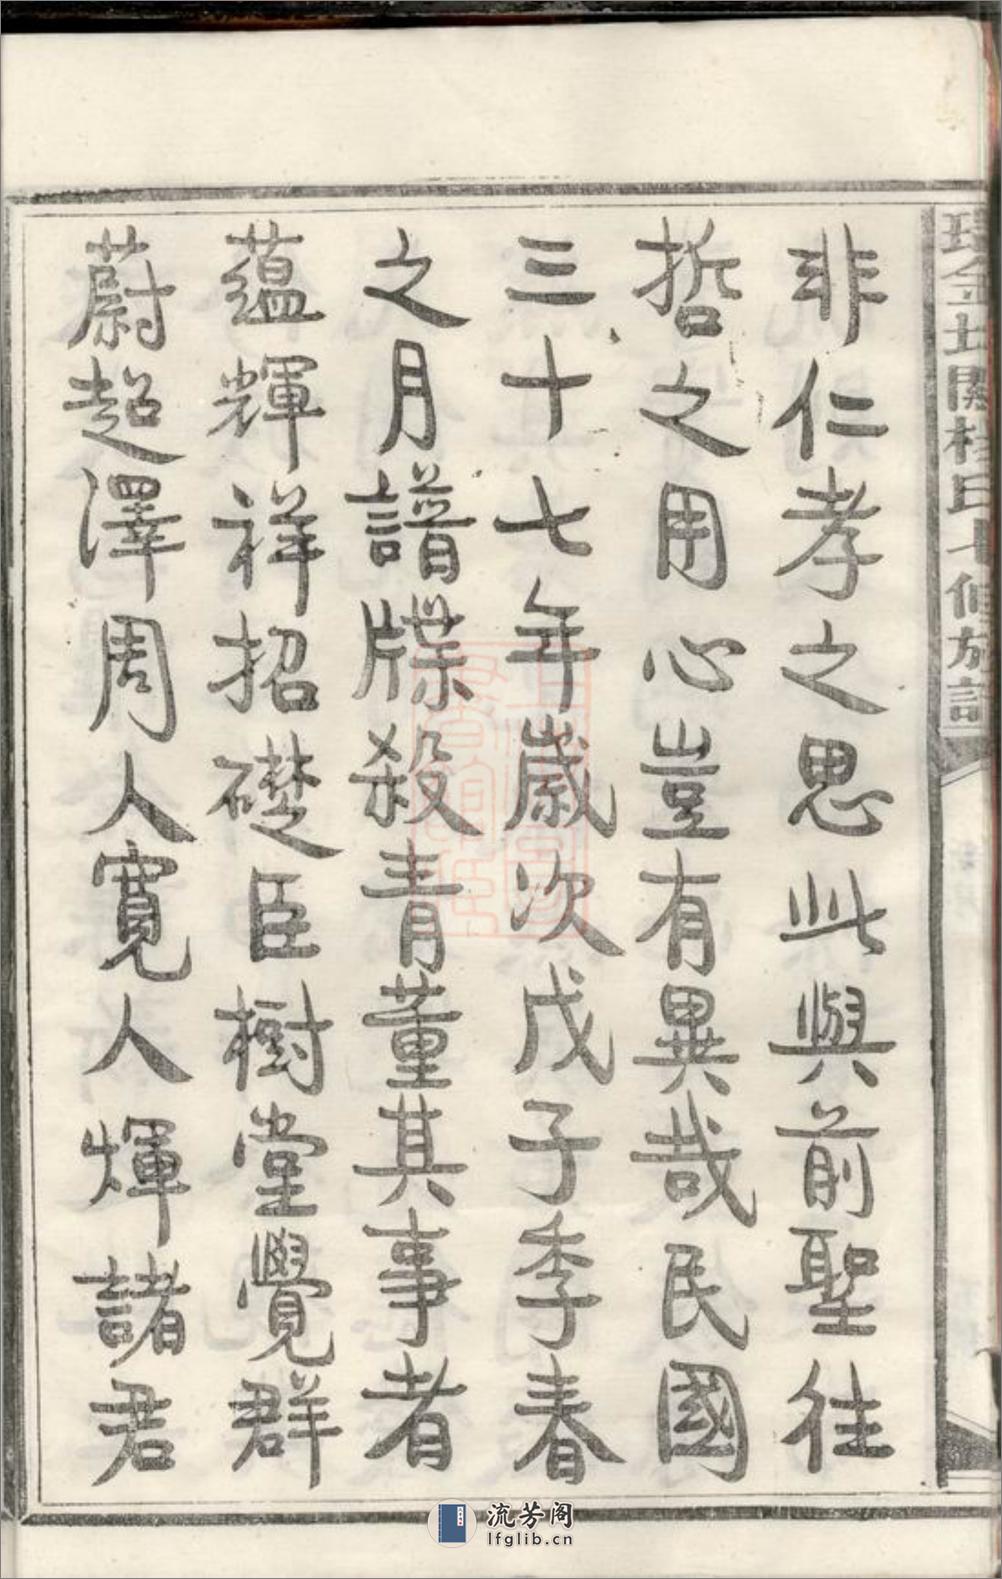 非仁孝之思此與前聖往
哲之用心豈有異哉民國
三十七年歲次戊子季春
之月譜牒殺青董其事者
蘊輝祥招礎臣樹堂覺群
蔚超澤周人寬人煇諸君
金關桂氏七修族譜
流芳阁
lfglib.cn